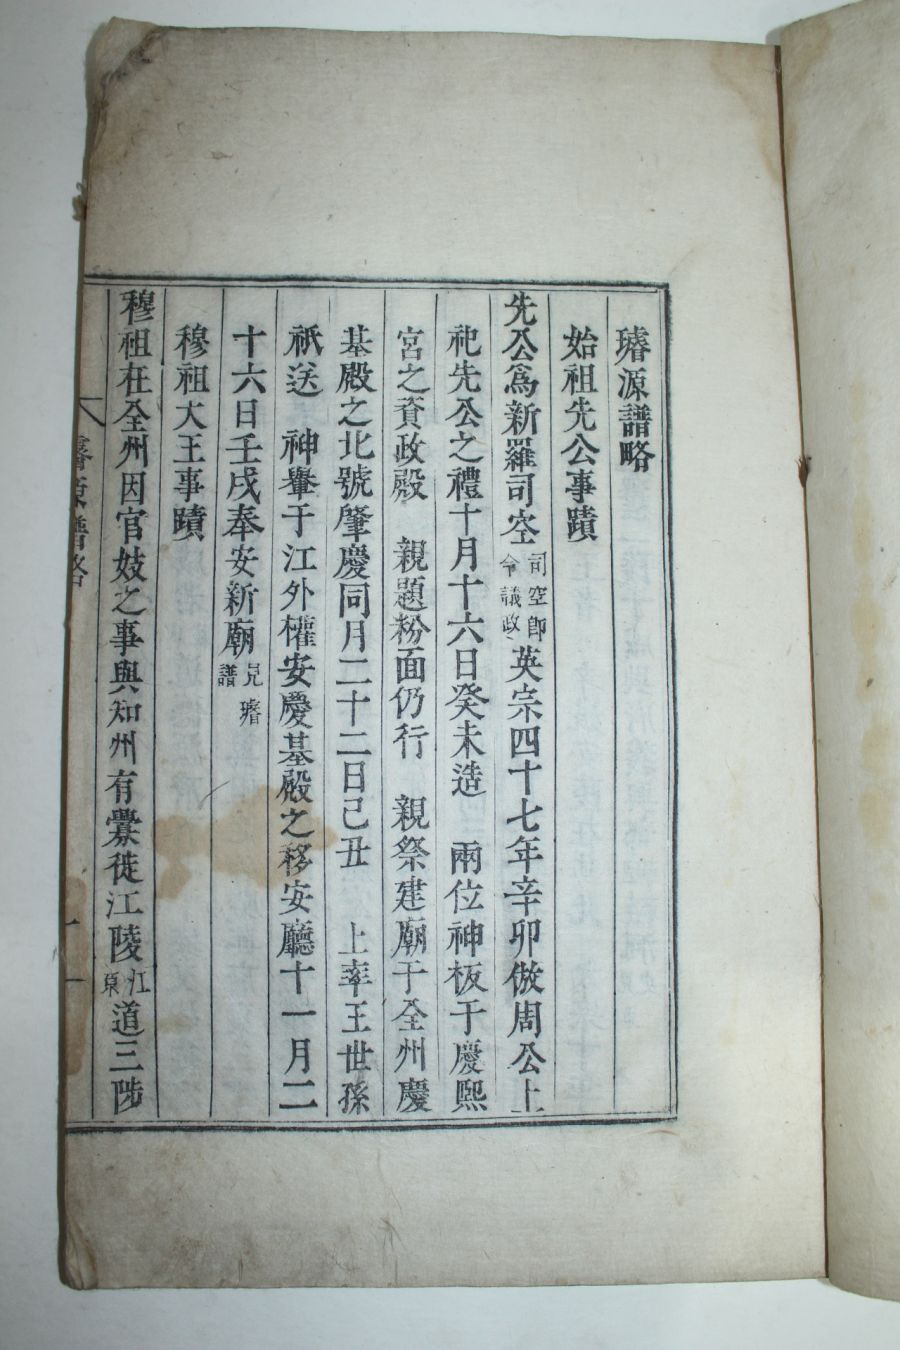 璿源譜略
始祖先公事蹟
先公爲新羅司空司空卽今議政英宗四十七年辛卯倣周公上
祀先公之禮十月十六日癸未造 兩位神板于慶熙
宮之資政殿 親題粉面仍行 親祭建廟于全州慶
基殿之北號肇慶同月二十二日己丑 上率王世孫
祇送 神轝于江外權安慶基殿之移安廳十一月二
十六日壬戌奉安新廟見璿譜
穆祖大王事蹟
穆祖在全州因官妓之事與知州有釁徙江陵江原道三陟
璿源譜略
一